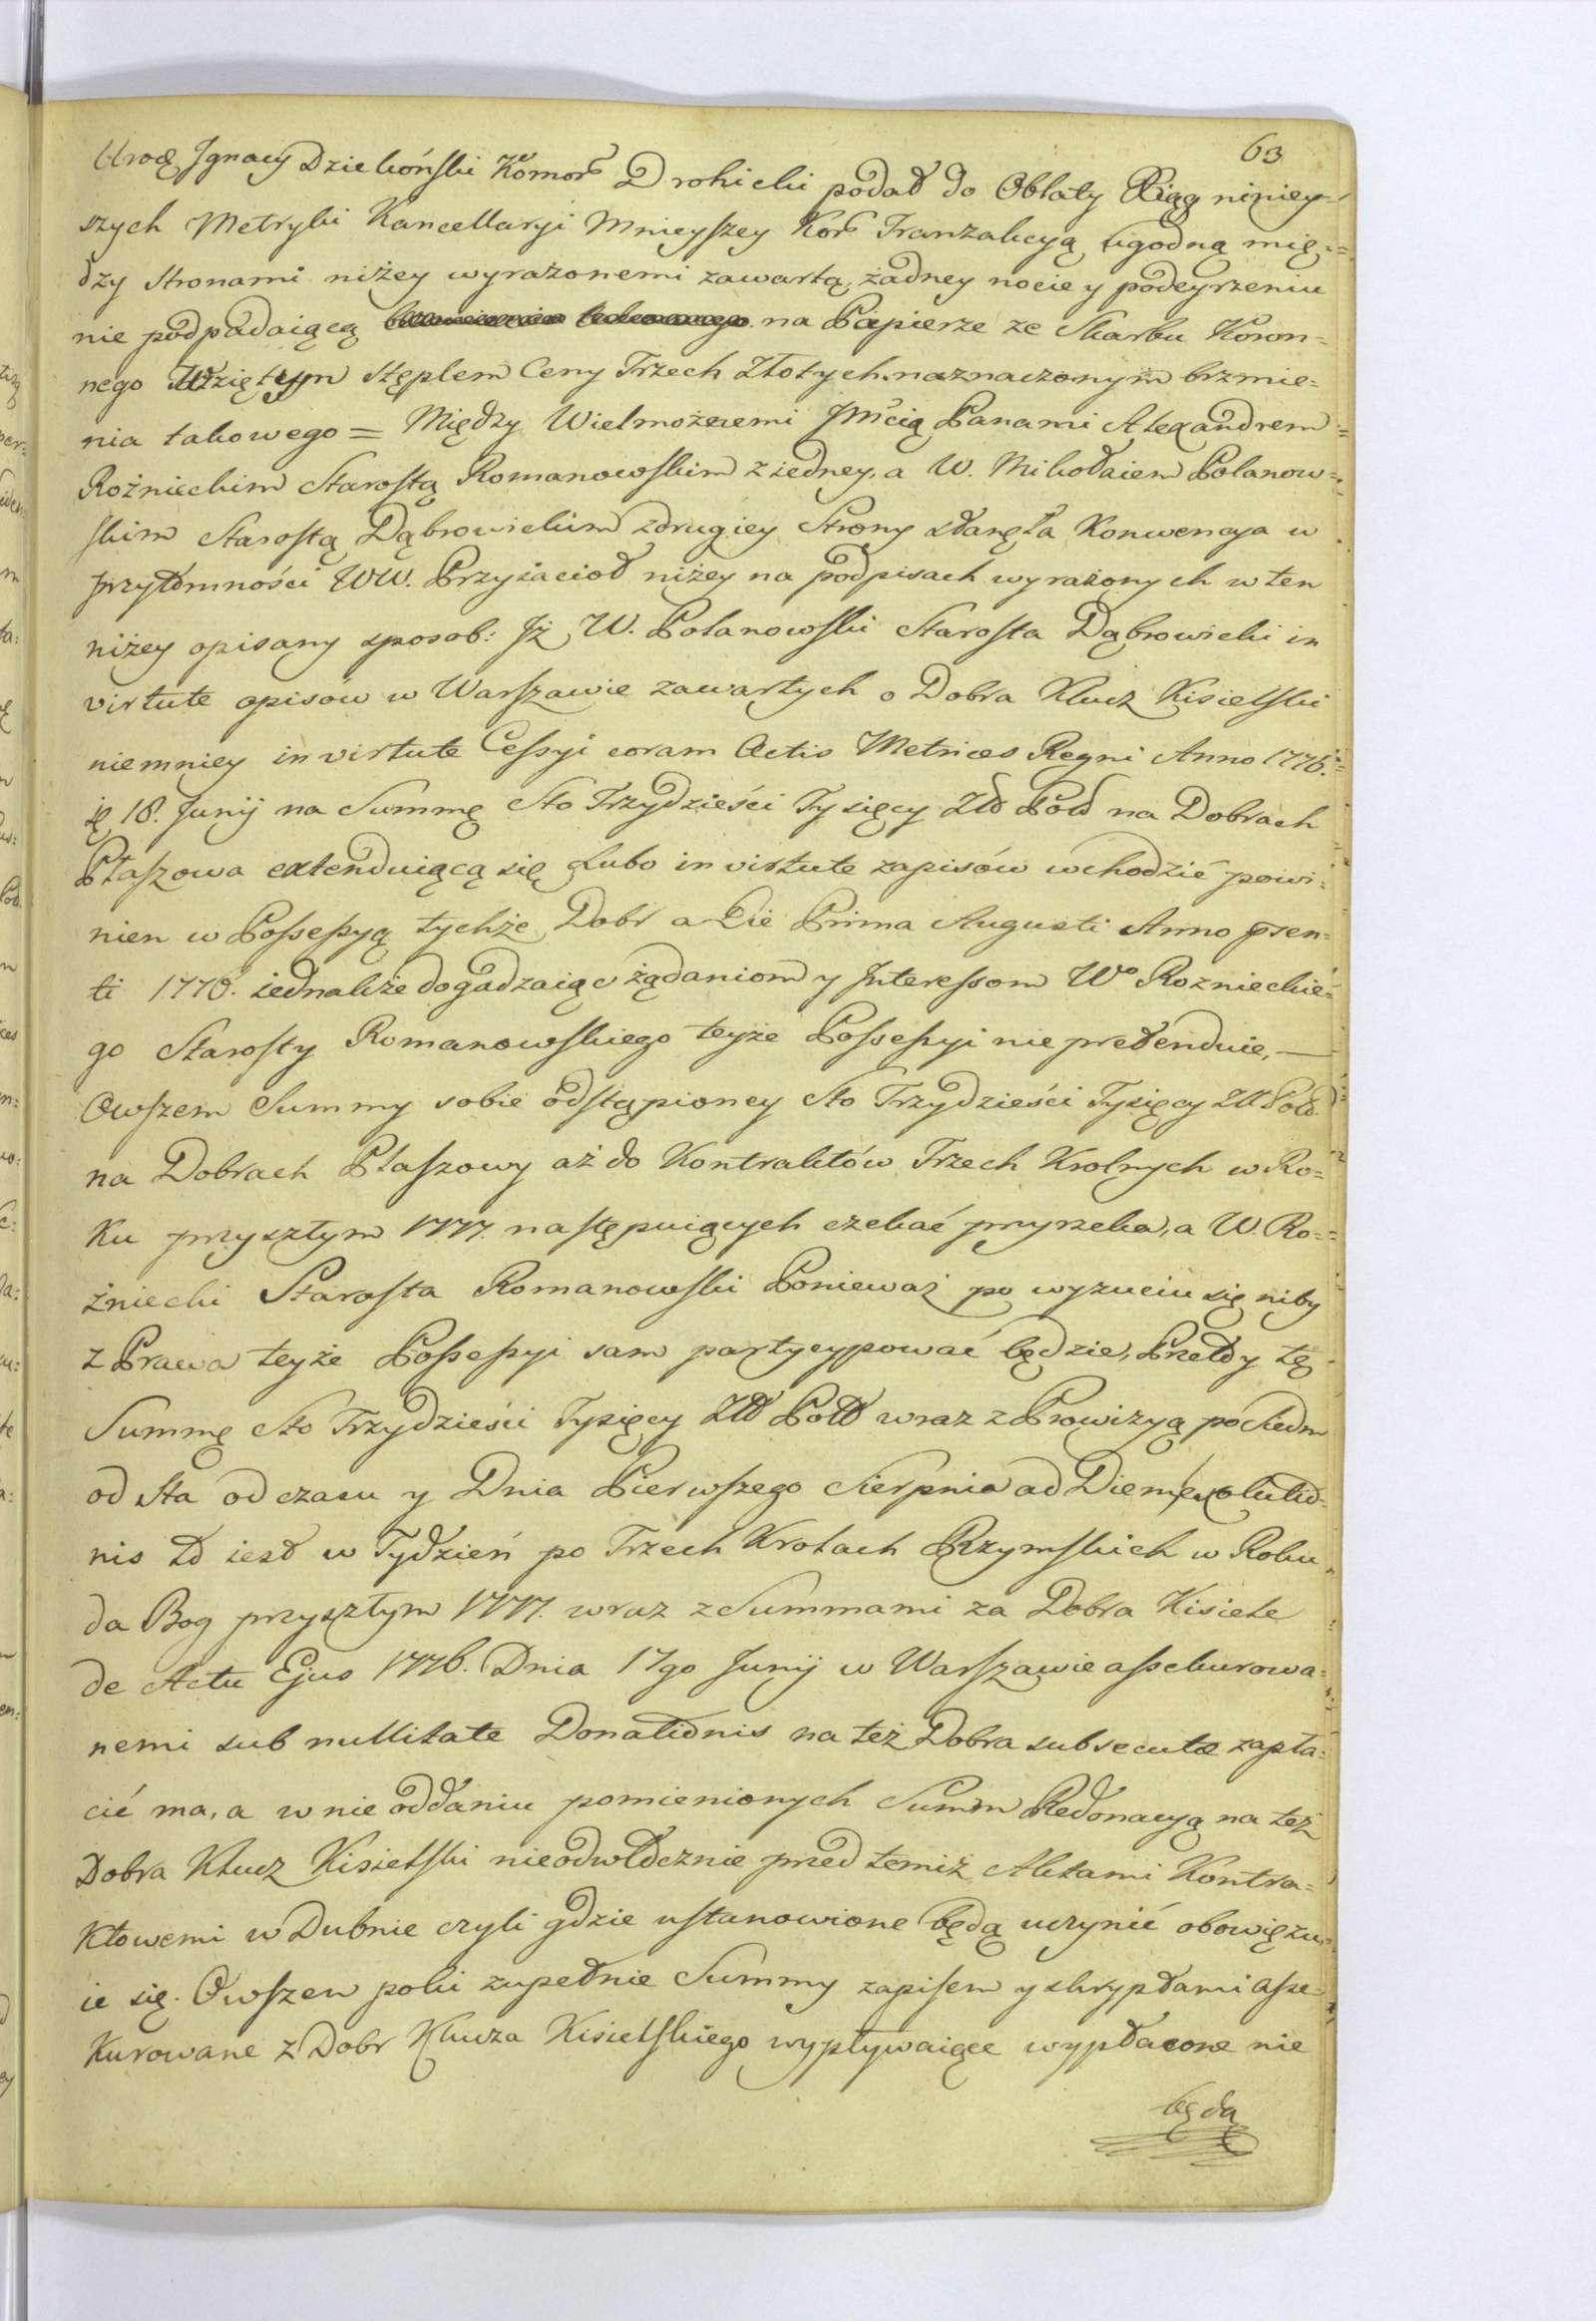 63
Uroę Jgnacy Dziekoński Komor Drohicki podał do Oblaty Xiąg niniey-
szych Metryki Kancellaryi Mnieyszey Kor Tranzakcyą ugodną mię=
dzy Stronami niżey wyrażonemi zawartą, żadney nocie y podeyrzeniu
nie podpadaiącą brzmienia takowego na Papierze ze Skarbu Koron=
nego Wziętym Stęplem Ceny Trzech Złotych naznaczonym brzmie=
nia takowego = Między Wielmożnemi Jmcią Panami Alexandrem
Rożnieckim Starostą Romanowskim z iedney, a W. Mikołaiem Polanow=
skim Starostą Dąbrowickim z drugiey Strony stanęła Konwencya w
przytomności WW. Przyiacioł niżey na podpisach wyrażonych w ten
niżey opisany sposob: Jż W. Polanowski Starosta Dąbrowicki in
virtute opisów w Warszawie zawartych o Dobra Klucz Kisielski
niemniey in virtute Cessyi coram Actis Metrices Regni Anno 1776.
18. Junij na Summę Sto Trzydzieści Tysięcy Zło Pol na Dobrach
Płaszowa extenduiącą się Lubo in virtute zapisów wchodzić powi=
nien w Possessyą tychże Dobr a Die Prima Augusti Anno psen=
ti 1776. iednakże dogadzaiąc żądaniom y Jnteressom Wo Roznieckie=
go Starosty Romanowskiego teyże Possessyi nie pretenduie, —
Owszem Summy sobie odstąpioney Sto Trzydzieści Tysięcy Zll Poll
na Dobrach Płaszowy aż do Kontraktów Trzech Krolnych w Ro=
ku przysztym 1777. następuiących czekać przyrzeka, a W. Ro=
żniecki Starosta Romanowski Ponieważ po wyzuciu się niby
z Prawa teyże Possessyi sam partycypować będzie, Przeto y tę
Summę Sto Trzydzieści Tysięcy Zll Poll wraz z Prowizyą po Siedm
od Sta od czasu y Dnia Pierwszego Sierpnia ad Diem exolutio=
nis to iest w Tydzień po Trzech Krolach Rzymskich w Roku
da Bog przysztym 1777. wraz z Summami za Dobra Kisiele
de Actu Ejus 1776. Dnia 17go Junij w Warszawie assekurowa=
nemi sub nullitate Donationis na też Dobra subsecutæ zapła=
cić ma, a w nie oddaniu pomienionych Summ Redonacyą na też
Dobra Klucz Kisielski nieodwłocznie przed temiż Aktami Kontra=
ktowemi w Dubnie czyli gdzie ustanowione będą uczynić obowięzu=
ie się. Owszem poki zupełnie Summy zapisem y skryptami asse=
kurowane z Dobr Klucza Kisielskiego wypływaiące wypłacone nie
będą